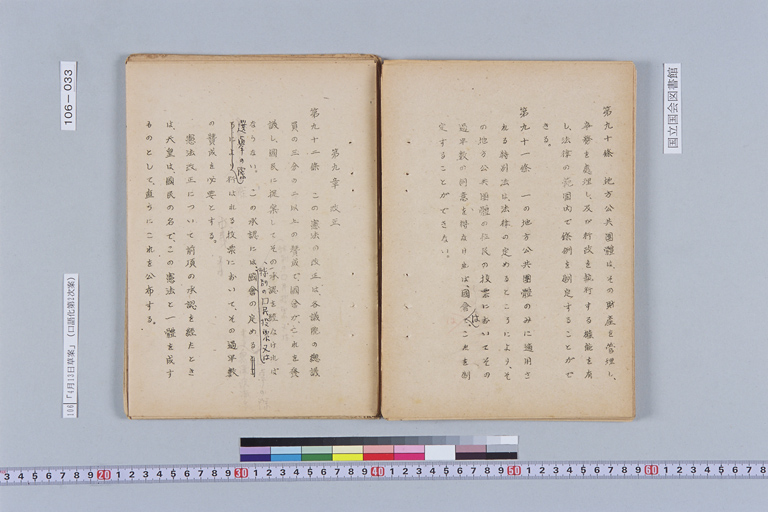 国立国会図書館
第九十條　地方公共團體は、その財產を管理し、
事務を處理し、及び行政を執行する權能を有
し、法律の範圍内で條例を制定することがで
きる。
第九十一條　一の地方公共團體のみに適用さ
れる特別法は、法律の定めるところにより、そ
の地方公共團體の住民の投票においてその
過半數の同意を得なければ、國會は、これを制
定することができない。
第九章　改正
第九十二條　この憲法の改正は、各議院の總議
員の三分の二以上の賛成で、國會が、これを發
議し、國民に提案してその承認を經なければ
ならない。この承認には、特別の國民投票又は國會の定める
選擧の際行はれる投票において、その過半數
の賛成を必要とする。
憲法改正について前項の承認を經たとき
は、天皇は、國民の名で、この憲法と一體を成す
ものとして、直ちにこれを公布する。
106-033
106 『4月13日草案』（口語化第1次案）
3 4 5 6 7 8 9 20 1 2 3 4 5 6 7 8 9 30 1 2 3 4 5 6 7 8 9 40 1 2 3 4 5 6 7 8 9 50 1 2 3 4 5 6 7 8 9 60 1 2 3 4 5 6 7 8